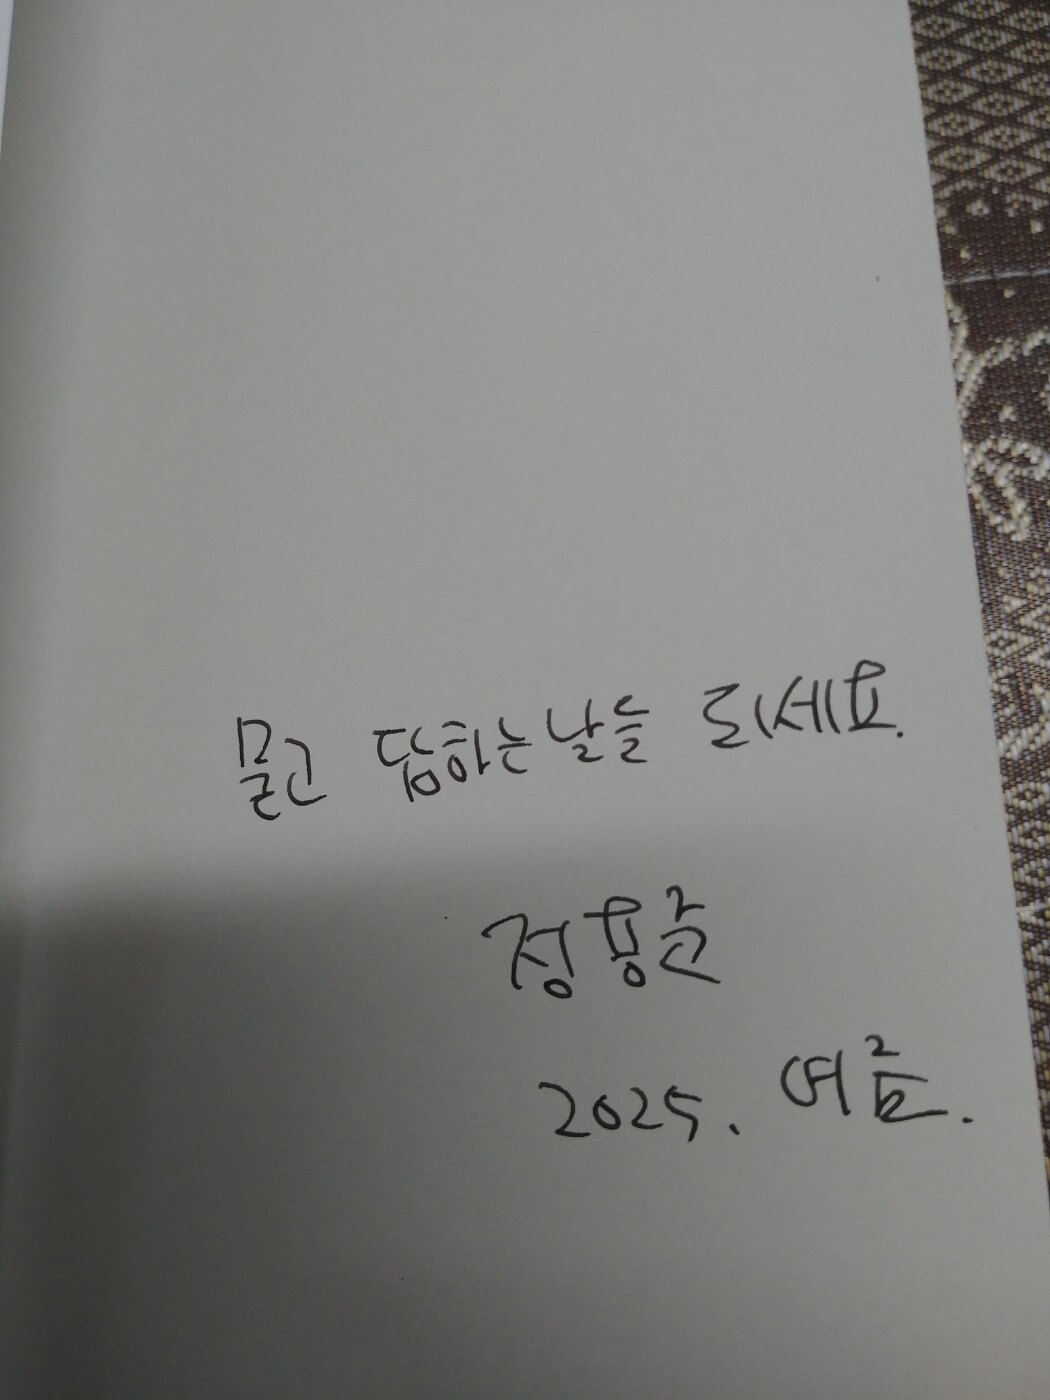 묻고 답하는 날들 되세요.
정용준
2025. 여름.